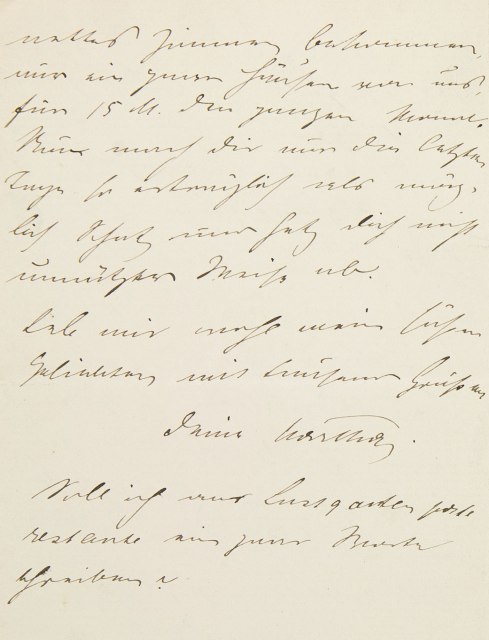 nettes Zimmer bekommen,
nur ein paar Häuser von uns,
für 15 M. den ganzen Monat.
Nun mach dir nur die letzten
Tage so erträglich als mög-
lich Schatz und hetz dich nicht
unnützer Weise ab.
Lebe mir wohl mein süßer
Geliebter, mit tausend Grüßen
Deine
Soll ich aus Lustgarten poste
restante ein paar Worte
schreiben?